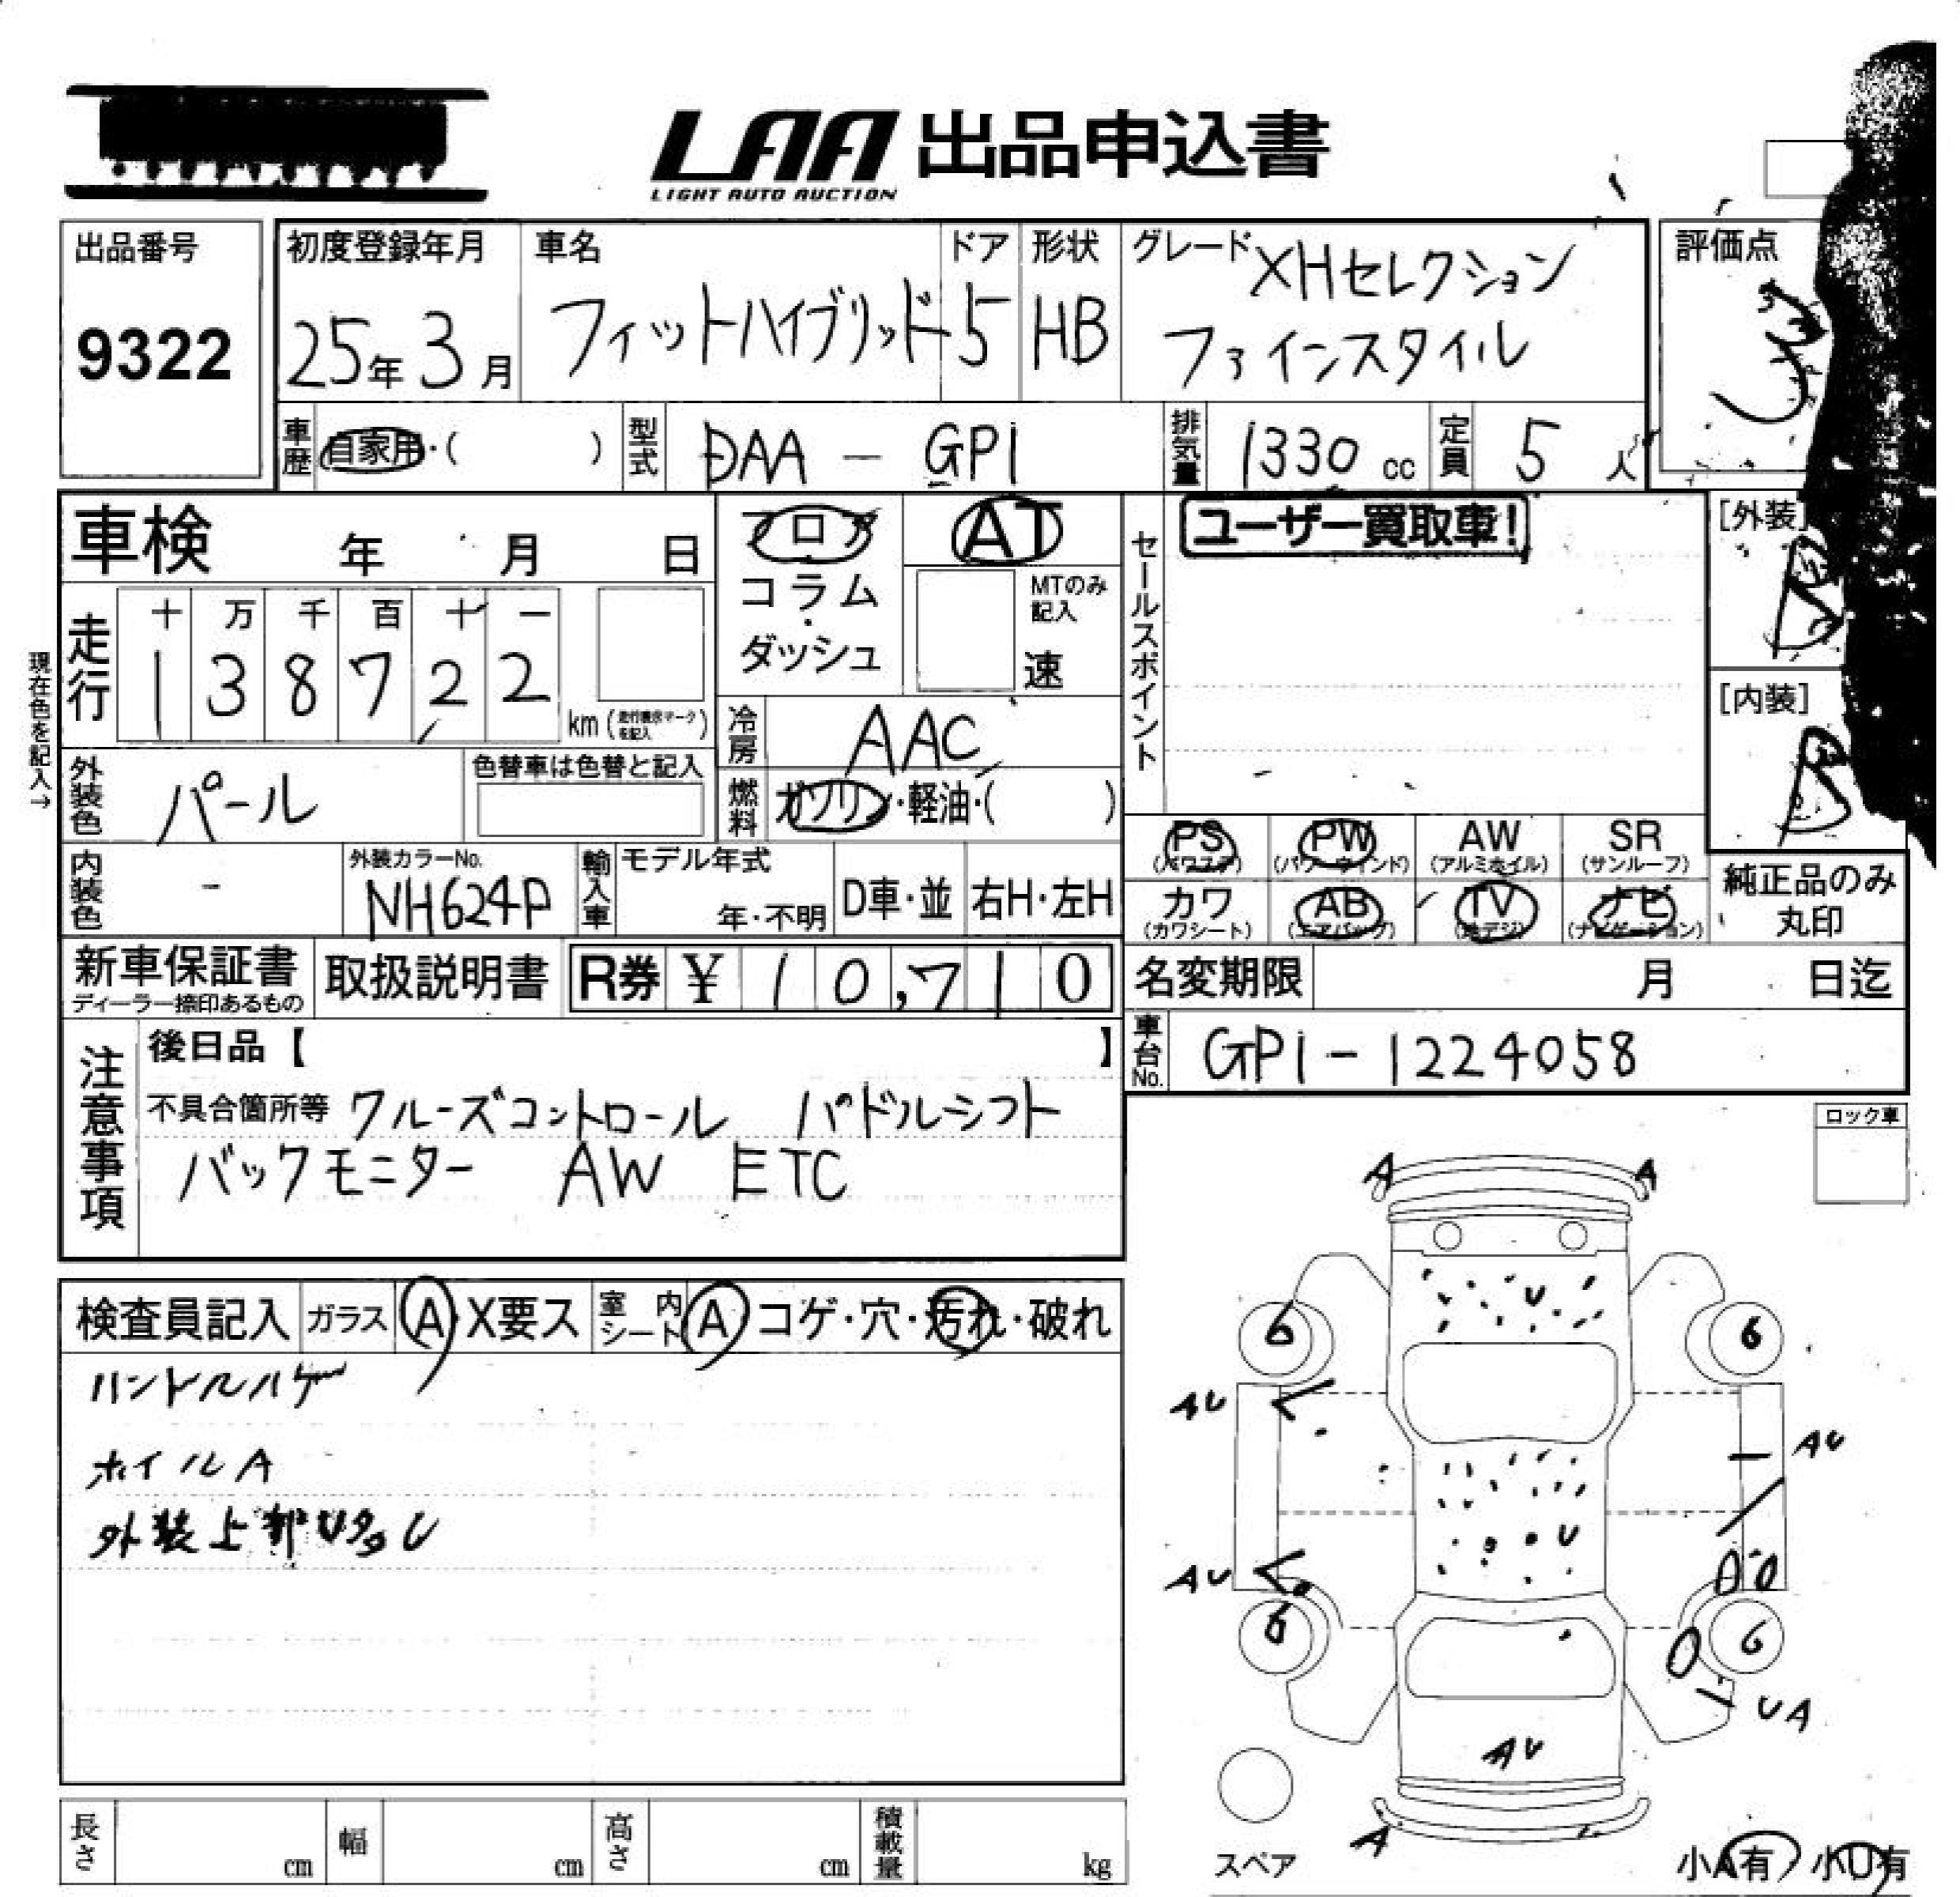 LAA 出品申込書
LIGHT AUTO AUCTION
出品番号
9322
初度登録年月
25年3月
車名
フィットハイブリッド
ドア
5
形状
HB
グレード
XHセレクション
ファインスタイル
評価点
車歴 自家用・( )
型式 DAA - GP1
排気量 1330 cc
定員 5 人
車検 年 月 日
フロア
コラム
・
ダッシュ
AT
MTのみ
記入
速
走行
十 万 千 百 十 一
1 3 8 7 2 2
km (走行表示マークを記入)
現在色を記入→
冷房 AAC
燃料 ガソリン・軽油・( )
外装色 パール
色替車は色替と記入
内装色 -
外装カラーNo.
NH624P
輸入車
モデル年式
年・不明
D車・並
右H・左H
新車保証書
ディーラー捺印あるもの
取扱説明書
R券 ¥ 10,710
セールスポイント
ユーザー買取車!
[外装]
[内装]
PS (パワステ)
PW (パワーウィンド)
AW (アルミホイル)
SR (サンルーフ)
カワ (カワシート)
AB (エアバッグ)
TV (地デジ)
ナビ (ナビゲーション)
純正品のみ
丸印
名変期限 月 日迄
車台No. GP1-1224058
注意事項
後日品【 】
不具合箇所等 クルーズコントロール パドルシフト
バックモニター AW ETC
ロック車
検査員記入
ガラス A・X要ス
室内シート A コゲ・穴・汚れ・破れ
ハンドルハゲ
ホイルA
外装上部UタタU
A A
U
6 6
AU
AU
U
AU
6 6
UA
AU
A
スペア
小A有 小U有
長さ cm
幅 cm
高さ cm
積載量 kg